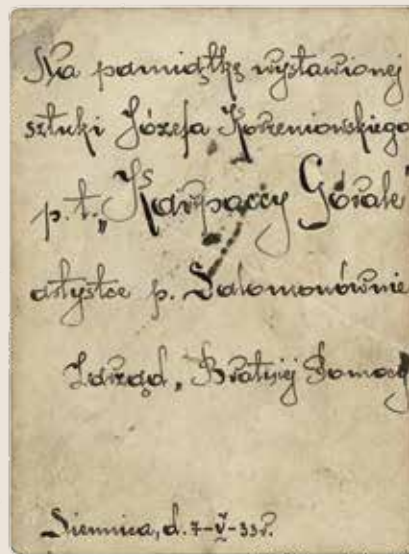 Na pamiątkę wystawionej
sztuki Józefa Korzeniowskiego
p.t. „Karpaccy Górale"
artystce p. Salomonównie
Zarząd „Bratniej Pomocy
Siennica, d. 7-V-33r.